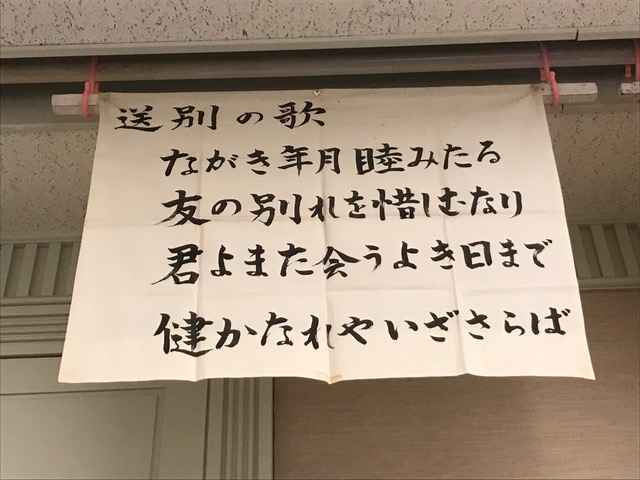 送別の歌
ながき年月睦みたる
友の別れを惜しむなり
君よまた会うよき日まで
健かなれやいざさらば